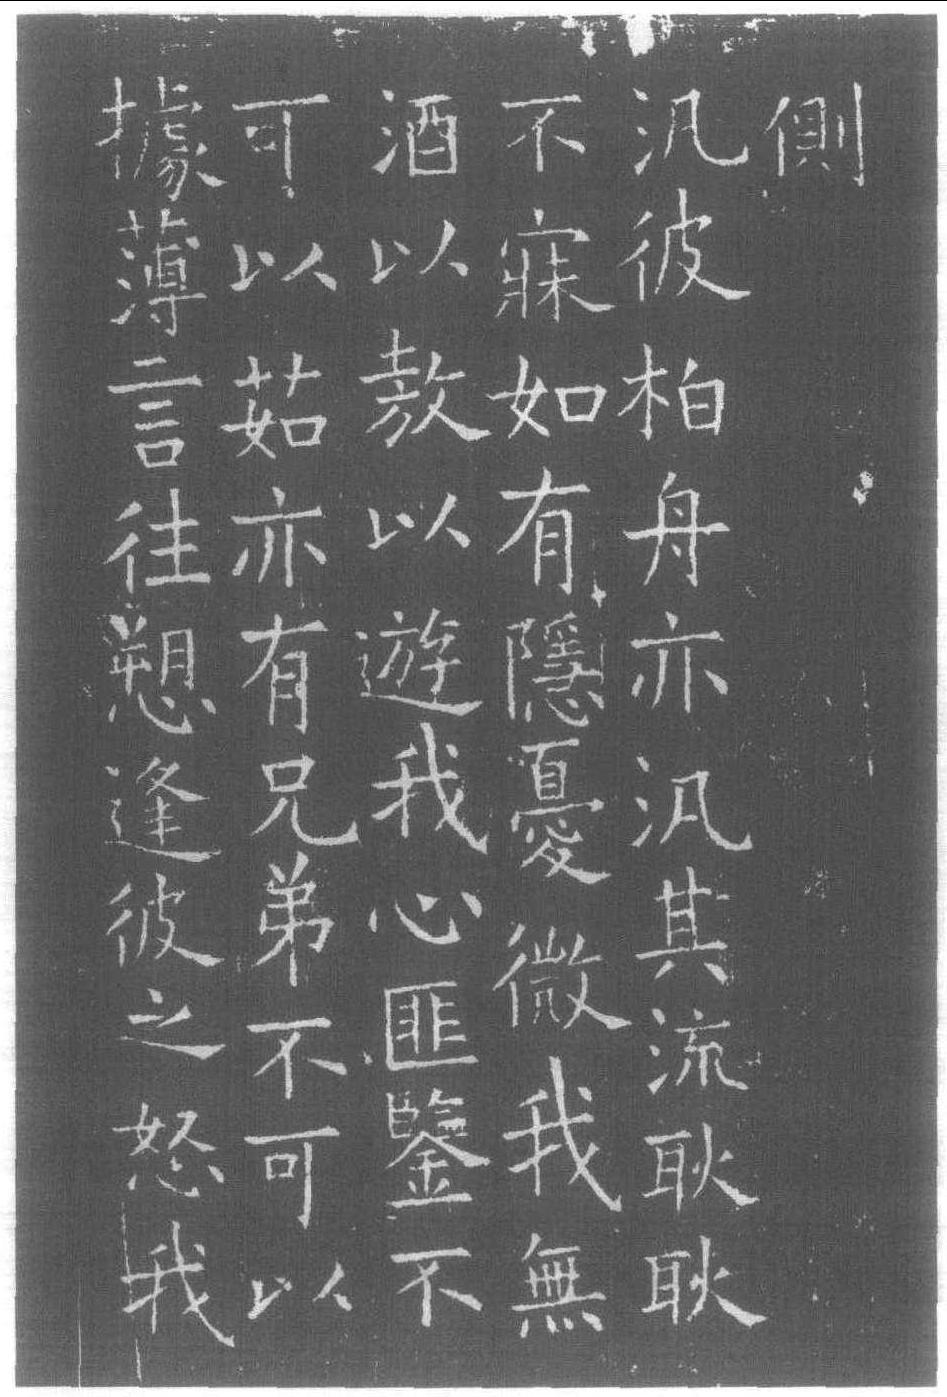 側
汎彼柏舟亦汎其流耿耿
不寐如有隱憂微我無
酒以敖以遊我心匪鑒不
可以茹亦有兄弟不可以
據薄言往愬逢彼之怒我